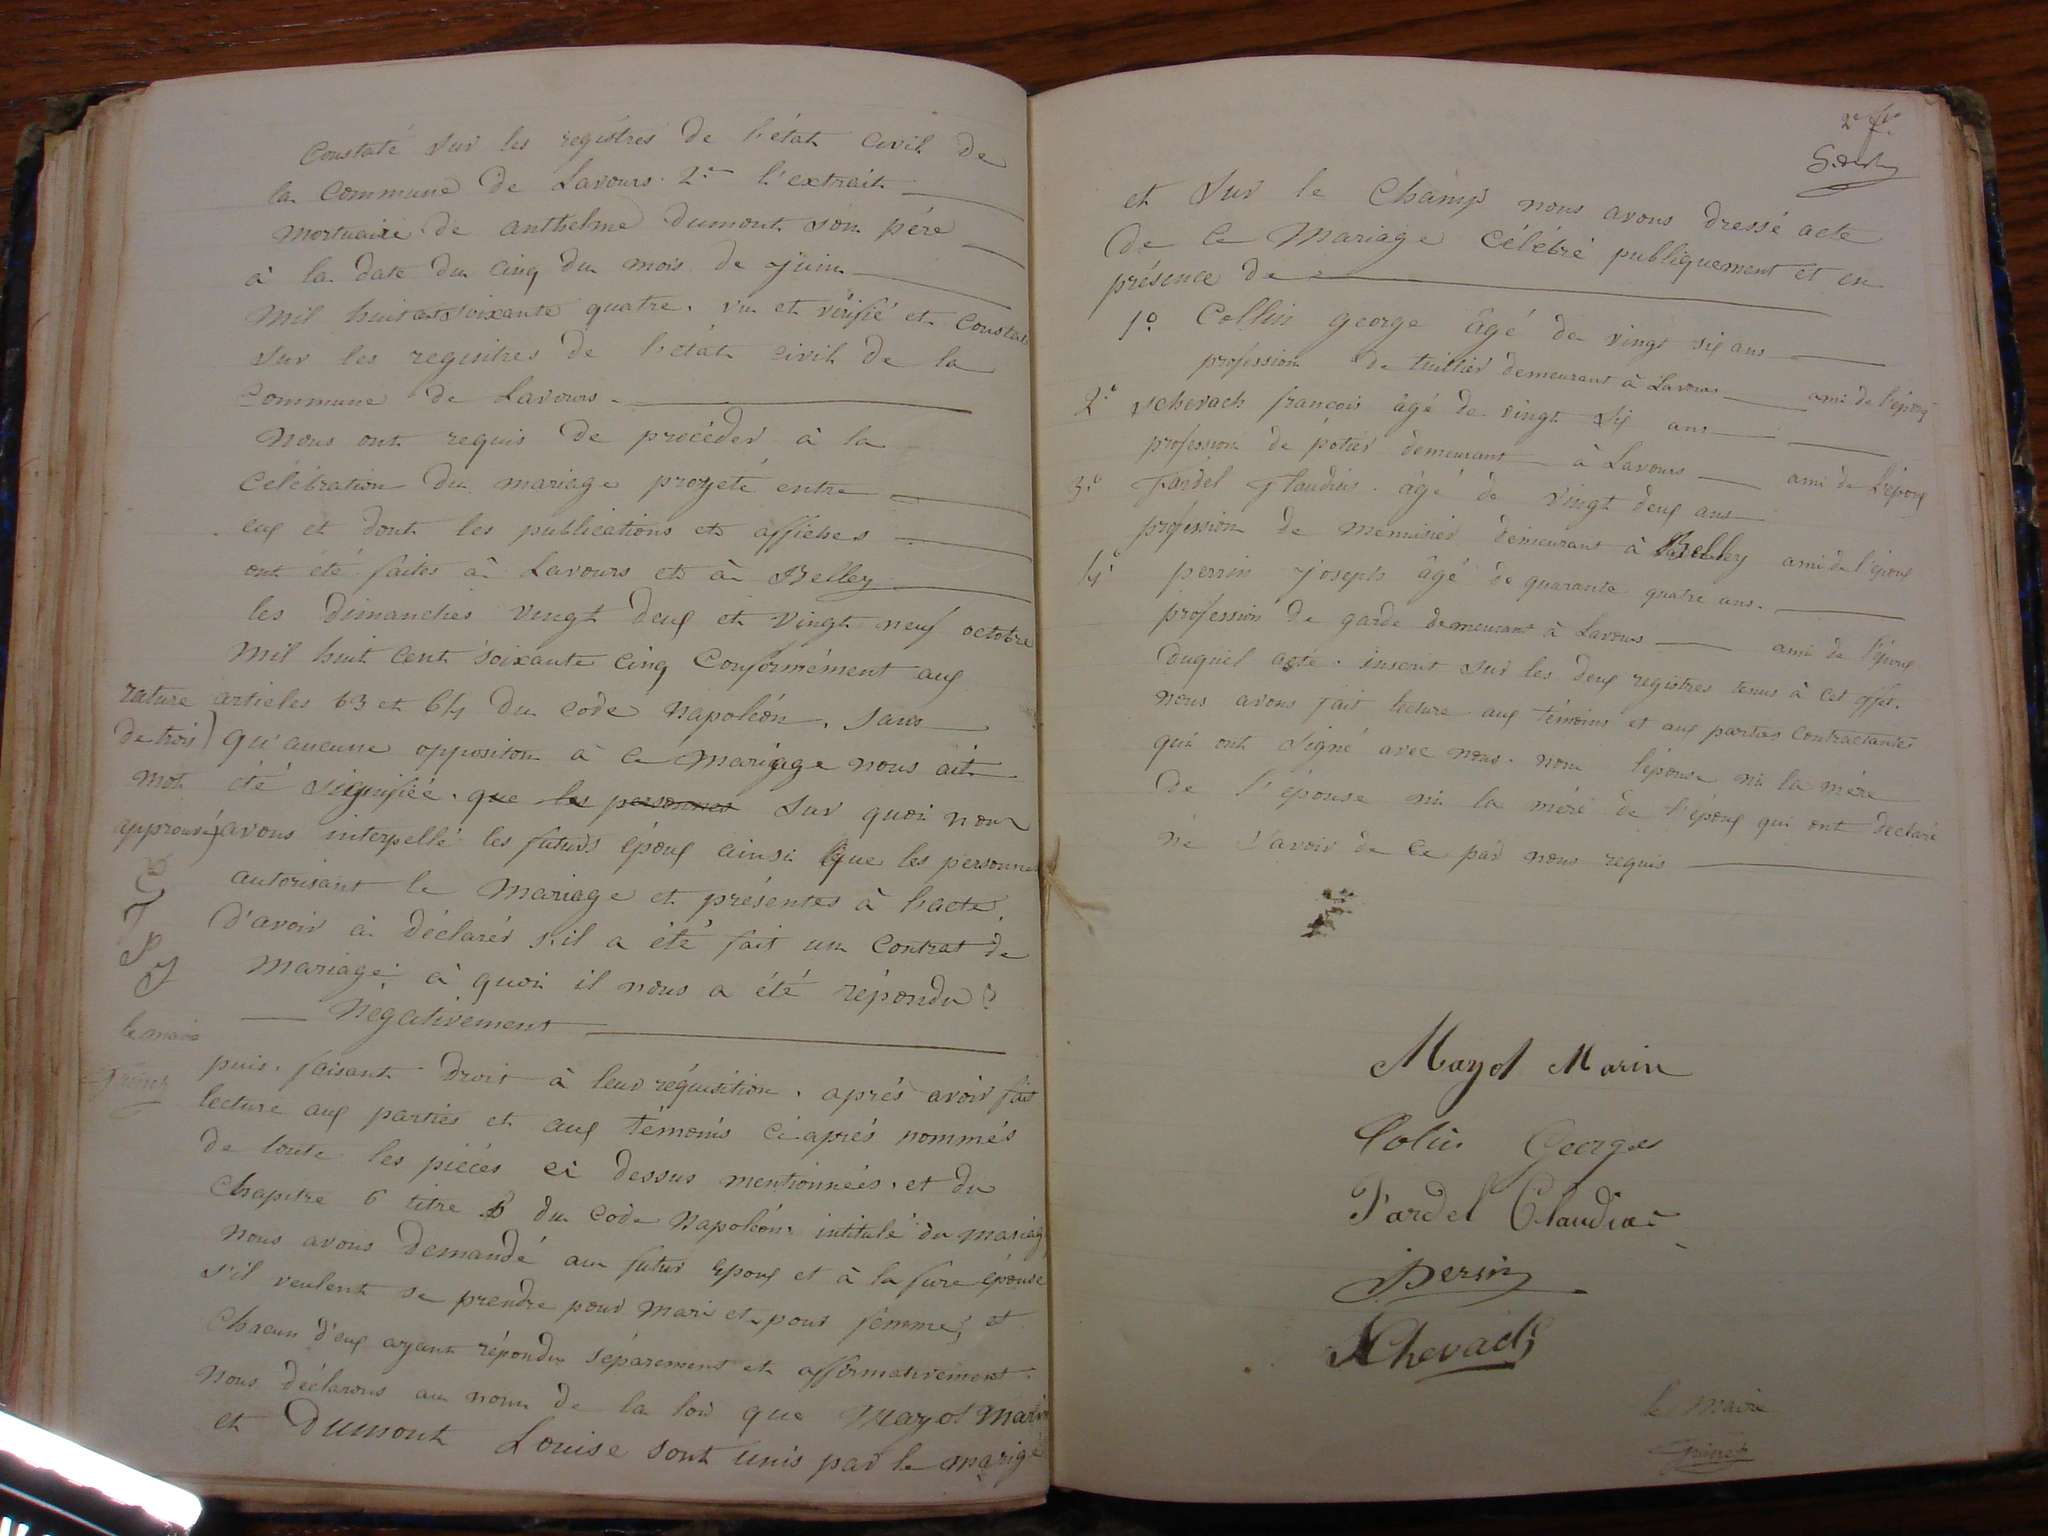 Constaté sur les registres de l'état civil de
la Commune de Lavours. 2° l'extrait
mortuaire de anthelme dumont son père
à la date du cinq du mois de juin
mil huit cent soixante quatre. vu et vérifié et Constaté
sur les regisitres de l'état civil de la
Commune de Lavours.
Nous ont requis de procéder à la
Célébration du mariage proyeté entre
eux et dont les publications et affiches
ont été faites à Lavours et à Belley
les dimanches vingt deux et vingt neuf octobre
mil huit cent soixante cinq Conformément aux
articles 63 et 64 du code Napoléon, sans
qu'aucune oppositon à ce mariage nous ait
été signifiée. que les personnes sur quoi nous
avons interpellé les futurs époux ainsi que les personnes
autorisant le mariage et présentes à l'acte
d'avoir à déclarer s'il a été fait un contrat de
mariage: à quoi il nous a été répondu
Négativement
puis. faisant droit à leur réquisition. après avoir fait
lecture aux parties et aux témoins ci-après nommés
de toute les pièces ci dessus mentionnées. et du
chapitre 6 titre 5 du code Napoléon. intitulé du mariage
nous avons demandé au futur époux et à la fure épouse
s'il veulent se prendre pour mari et pour femme; et
Chacun d'eux ayant répondu séparement et affirmativement.
Nous déclarons au nom de la loi que Mayol Marin
et Dumont Louise sont unis par le marige
rature
de trois
mot
approuvé
C G
T
P
S
le maire
2e fe
et sur le champs nous avons dressé acte
de ce Mariage célébré publiquement et en
présence de
1° Collin george âgé de vingt six ans
profession de tuillier demeurant à Lavours ami de l'époux
2° schevach françois âgé de vingt six ans
profession de potier demeurant à Lavours ami de l'époux
3° Tardel Claudius âgé de vingt deux ans
profession de menuisier demeurant à Belley ami de l'époux
4° perrin joseph âgé de quarante quatre ans.
profession de garde demeurant à Lavours ami de l'époux
Duquel acte. inscrit sur les deux registres tenus à cet effet.
nous avons fait lecture aux témoins et aux parties contractantes
qui ont signé avec nous. non l'épouse ni la mère
de l'épouse ni la mère de l'époux qui ont déclaré
ne savoir de ce par nous requis
Mayol Marin
Colin Georges
Tardel Claudius
Perin
SChevach
le maire